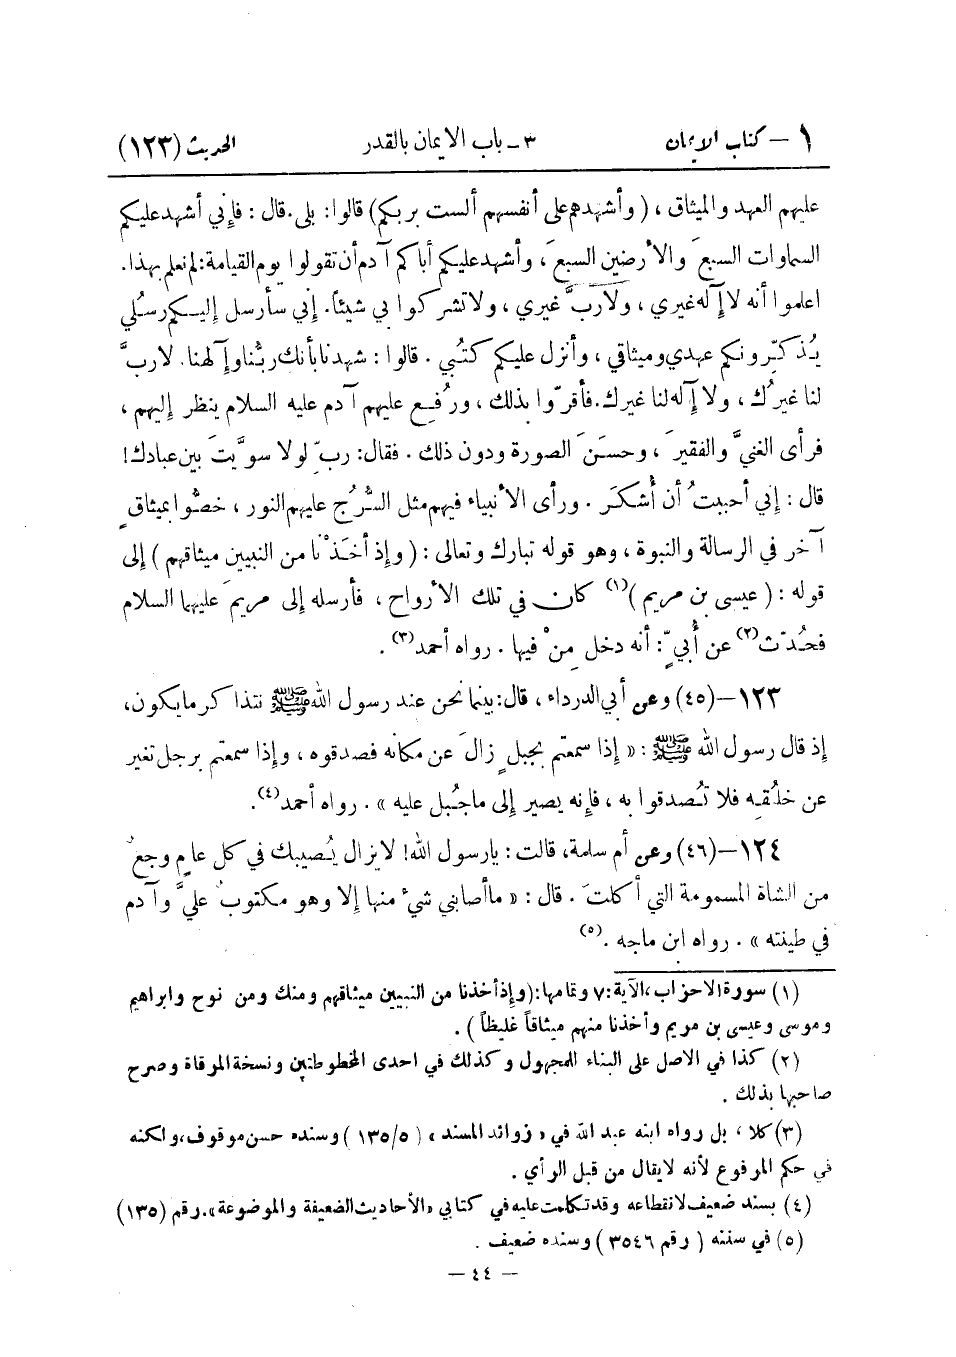 ١ – كتاب الايمان ٣ – باب الايمان بالقدر الحديث (١٢٣)
عليهم العهد والميثاق ، ( وأشهدهم على أنفسهم ألست بربكم ) قالوا : بلى . قال : فإني أشهد عليكم
السماوات السبعَ والأرضين السبعَ ، وأشهد عليكم أباكم آدم أن تقولوا يوم القيامة : لم نعلم بهذا .
اعلموا أنه لا إله غيري ، ولا ربَّ غيري ، ولا تشركوا بي شيئاً . إني سأرسل إليكم رسُلي
يُذكِّرونكم عهدي وميثاقي ، وأنزل عليكم كتُبي . قالوا : شهدنا بأنك ربُّنا وإلهنا . لا ربَّ
لنا غيرُك ، ولا إله لنا غيرك . فأقرّوا بذلك ، ورُفع عليهم آدم عليه السلام ينظر إليهم ،
فرأى الغنيَّ والفقيرَ ، وحسَنَ الصورة ودون ذلك . فقال : ربِّ لولا سوَّيتَ بين عبادك !
قال : إني أحببتُ أن أُشكَرَ . ورأى الأنبياء فيهم مثل السُّرُج عليهم النور ، خصُّوا بميثاقٍ
آخر في الرسالة والنبوة ، وهو قوله تبارك وتعالى : ( وإذ أخَذْنا من النبيين ميثاقهم ) إلى
قوله : ( عيسى بن مريم )(١) كان في تلك الأرواح ، فأرسله إلى مريمَ عليهما السلام
فحُدِّث(٢) عن أُبيٍّ : أنه دخل مِنْ فيها . رواه أحمد(٣) .
١٢٣ – (٤٥) وعن أبي الدرداء ، قال : بينما نحن عند رسول الله ﷺ نتذاكر ما يكون ،
إذ قال رسول الله ﷺ : « إذا سمعتم بجبلٍ زالَ عن مكانه فصدقوه ، وإذا سمعتم برجل تغير
عن خلُقه فلا تُصدقوا به ، فإنه يصير إلى ما جُبل عليه » . رواه أحمد(٤) .
١٢٤ – (٤٦) وعن أم سلمة ، قالت : يا رسول الله ! لا يزال يُصيبك في كل عامٍ وجعٌ
من الشاة المسمومة التي أكلتَ . قال : « ما أصابني شيءٌ منها إلا وهو مكتوبٌ عليَّ وآدم
في طينته » . رواه ابن ماجه .(٥)
(١) سورة الاحزاب ، الآية : ٧ وتمامها : ( وإذ أخذنا من النبيين ميثاقهم ومنك ومن نوح وابراهيم
وموسى وعيسى بن مريم وأخذنا منهم ميثاقاً غليظاً ) .
(٢) كذا في الاصل على البناء للمجهول وكذلك في احدى المخطوطتين ونسخة المرقاة وصرح
صاحبها بذلك .
(٣) كلا ، بل رواه ابنه عبد الله في « زوائد المسند » ( ١٣٥/٥ ) وسنده حسن موقوف ، ولكنه
في حكم المرفوع لأنه لا يقال من قبل الرأي .
(٤) بسند ضعيف لانقطاعه وقد تكلمت عليه في كتابي « الأحاديث الضعيفة والموضوعة » . رقم (١٣٥)
(٥) في سننه ( رقم ٣٥٤٦ ) وسنده ضعيف .
– ٤٤ –